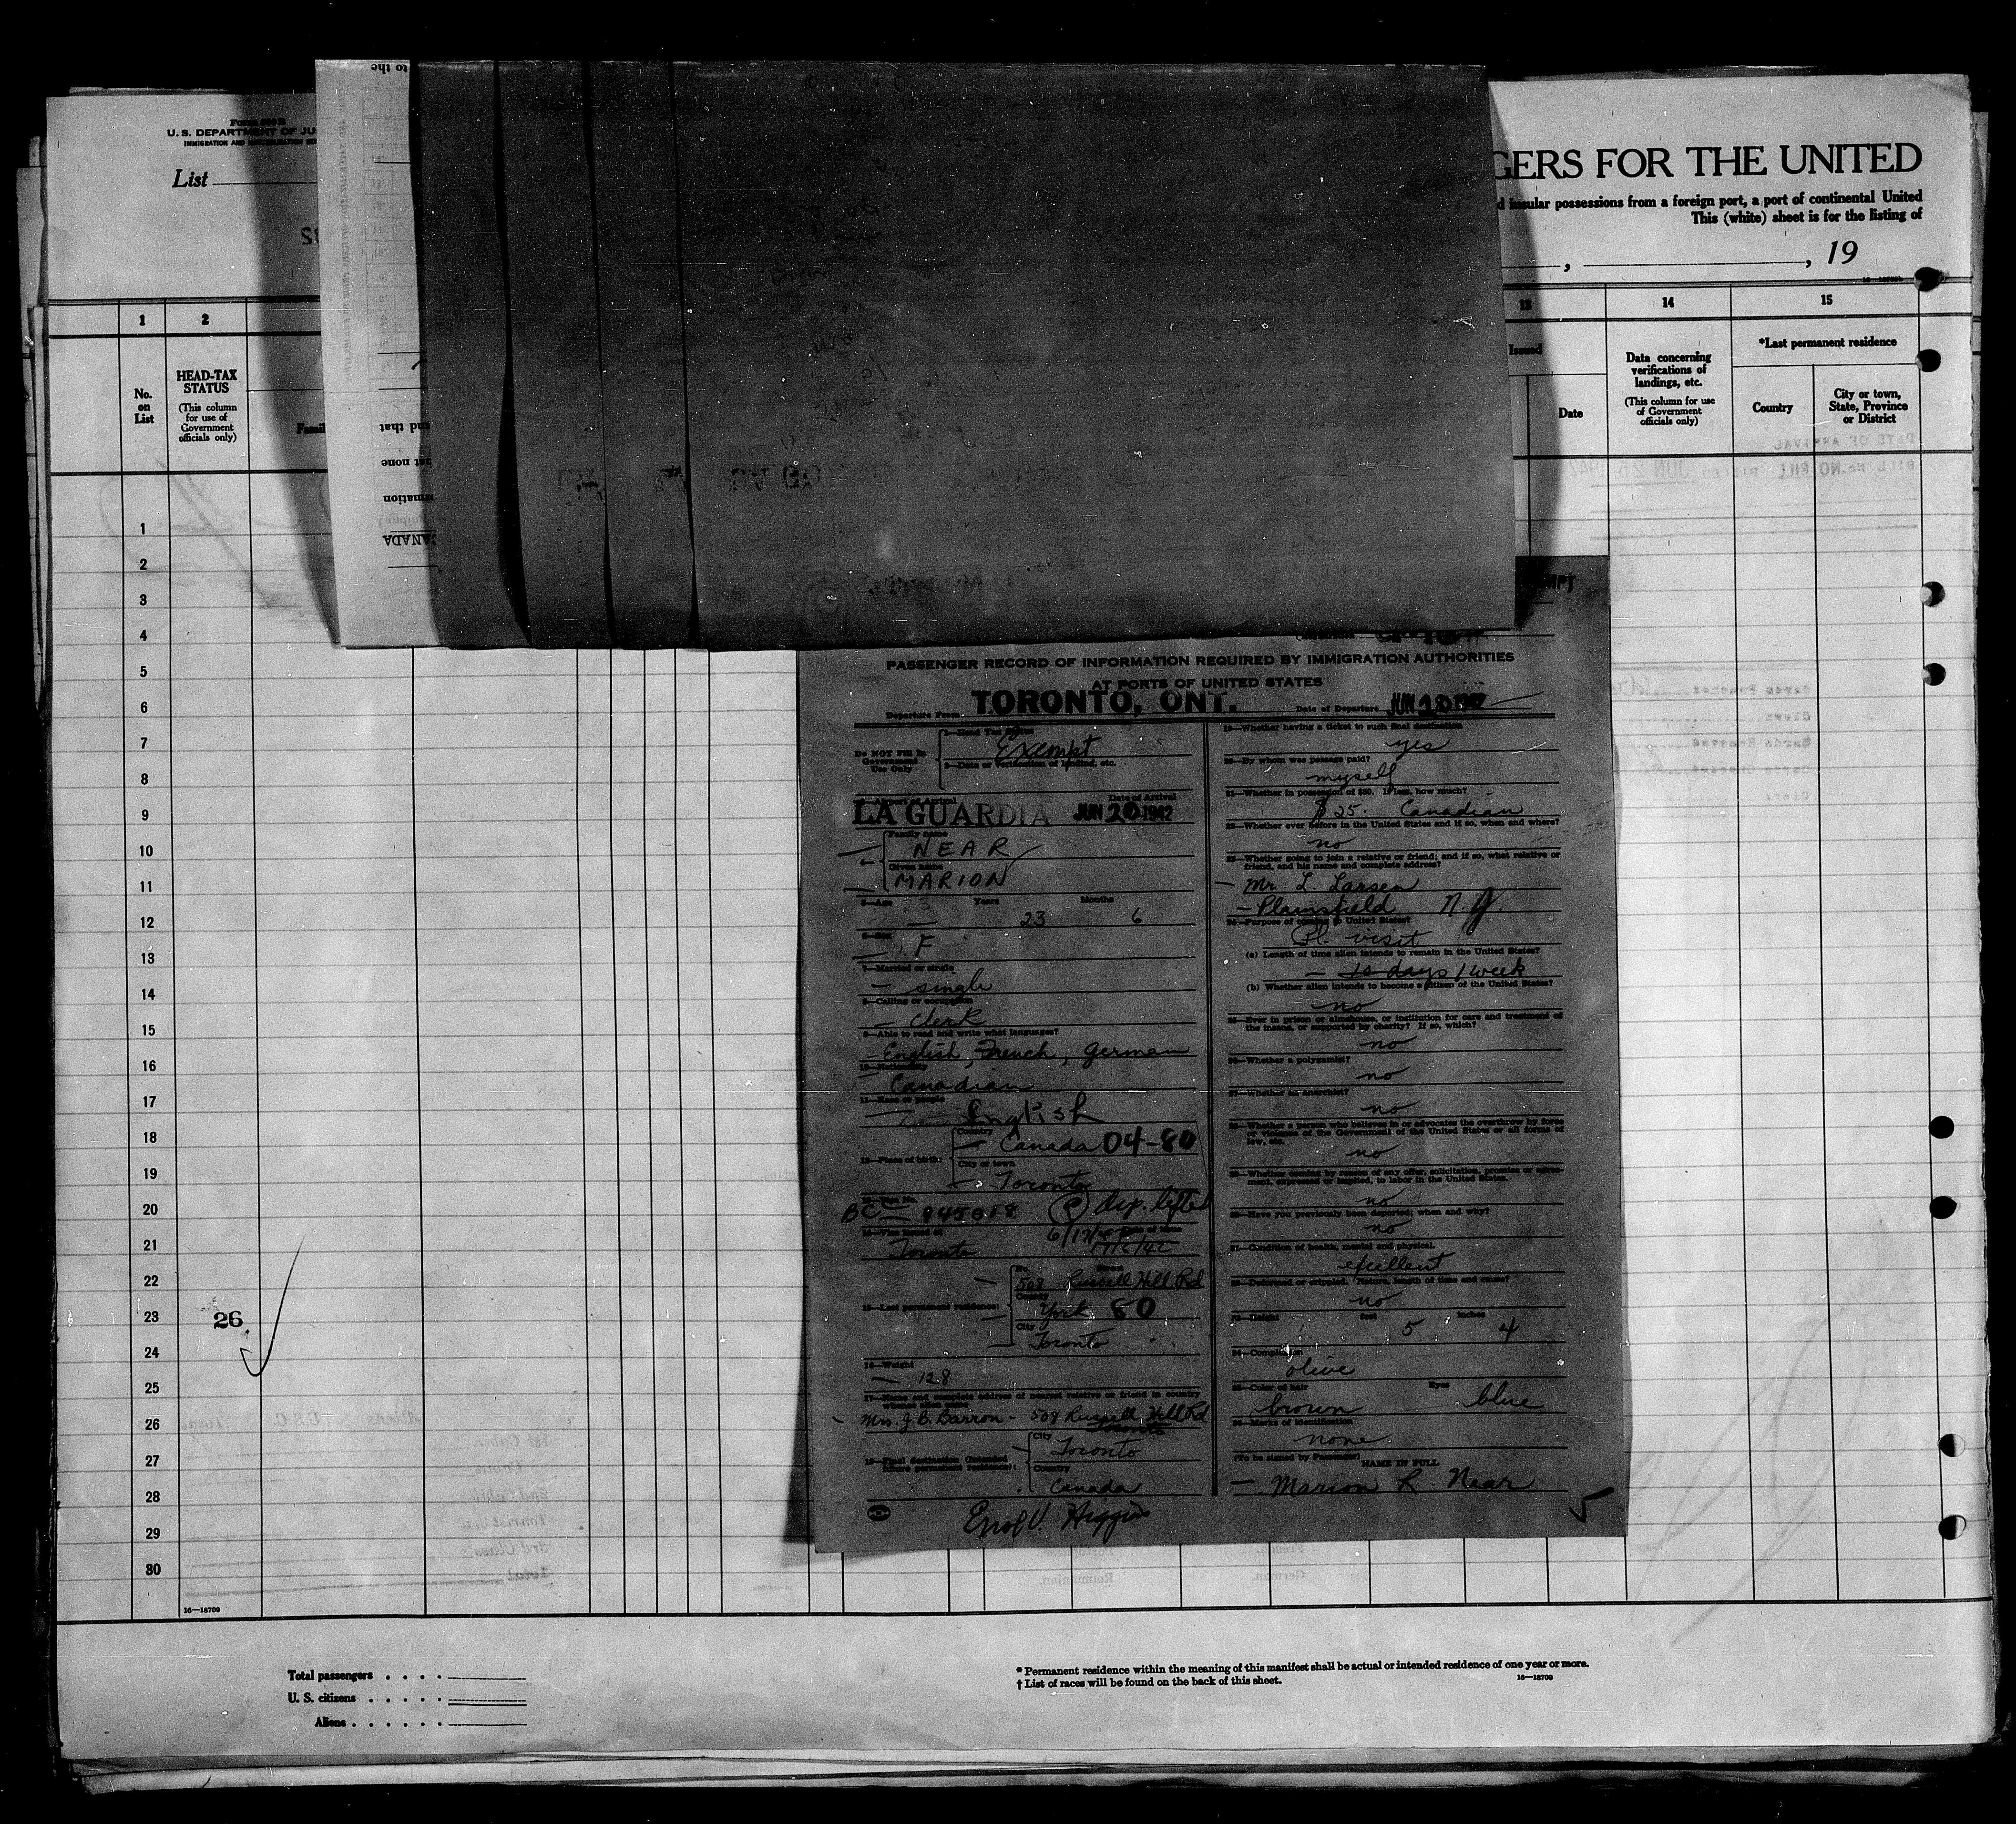 U. S. DEPARTMENT OF JU
List
GERS FOR THE UNITED
d insular possessions from a foreign port, a port of continental United
This (white) sheet is for the listing of
, 19
1 2 13 14 15
No. on List
HEAD-TAX STATUS
(This column for use of Government officials only)
Famil
Issued
Date
Data concerning verifications of landings, etc.
(This column for use of Government officials only)
*Last permanent residence
Country
City or town, State, Province or District
1
2
3
4
5
6
7
8
9
10
11
12
13
14
15
16
17
18
19
20
21
22
23
24
25
26
27
28
29
30
26
16—18709
PASSENGER RECORD OF INFORMATION REQUIRED BY IMMIGRATION AUTHORITIES
AT PORTS OF UNITED STATES
Departure From TORONTO, ONT.
Date of Departure JUN
Do NOT Fill in
Government
Use Only
Exempt
2—Date or verification of landing, etc.
Date of Arrival
LA GUARDIA JUN 20 1942
Family name
NEAR
Given name
MARION
5—Age Years Months
23 6
F
7—Married or single
single
8—Calling or occupation
clerk
9—Able to read and write what languages?
English, French, German
10—Nationality
Canadian
11—Race or people
English
Country
Canada 04-80
12—Place of birth:
City or town
Toronto
BC 945018 dep. lifted
Toronto
508 Russell Hill Rd
County
York 80
15—Last permanent residence:
City
Toronto
16—Weight
128
17—Name and complete address of nearest relative or friend in country
whence alien came
Mrs. J. B. Barron - 508 Russell Hill Rd
Toronto
City
Toronto
18—Final destination (Intended
future permanent residence):
Country
Canada
19—Whether having a ticket to such final destination
yes
20—By whom was passage paid?
myself
21—Whether in possession of $50. If less, how much?
$25. Canadian
22—Whether ever before in the United States and if so, when and where?
no
23—Whether going to join a relative or friend; and if so, what relative or
friend, and his name and complete address?
Mr L. Larsen
Plainsfield N.J.
24—Purpose of coming to United States?
Pl. visit
(a) Length of time alien intends to remain in the United States?
10 days 1 week
(b) Whether alien intends to become a citizen of the United States?
no
25—Ever in prison or almshouse, or institution for care and treatment of
the insane, or supported by charity? If so, which?
no
26—Whether a polygamist?
no
27—Whether an anarchist?
no
28—Whether a person who believes in or advocates the overthrow by force
or violence of the Government of the United States or all forms of
law, etc.
no
29—Whether coming by reason of any offer, solicitation, promise or agree-
ment, expressed or implied, to labor in the United States.
no
30—Have you previously been deported; when and why?
no
31—Condition of health, mental and physical.
excellent
32—Deformed or crippled. Nature, length of time and cause?
no
33—Height feet inches
5 4
34—Complexion
olive
35—Color of hair Eyes
brown blue
36—Marks of identification
none
(To be signed by Passenger) NAME IN FULL
Marion R Near
Total passengers
U. S. citizens
Aliens
* Permanent residence within the meaning of this manifest shall be actual or intended residence of one year or more.
† List of races will be found on the back of this sheet.
16—18709